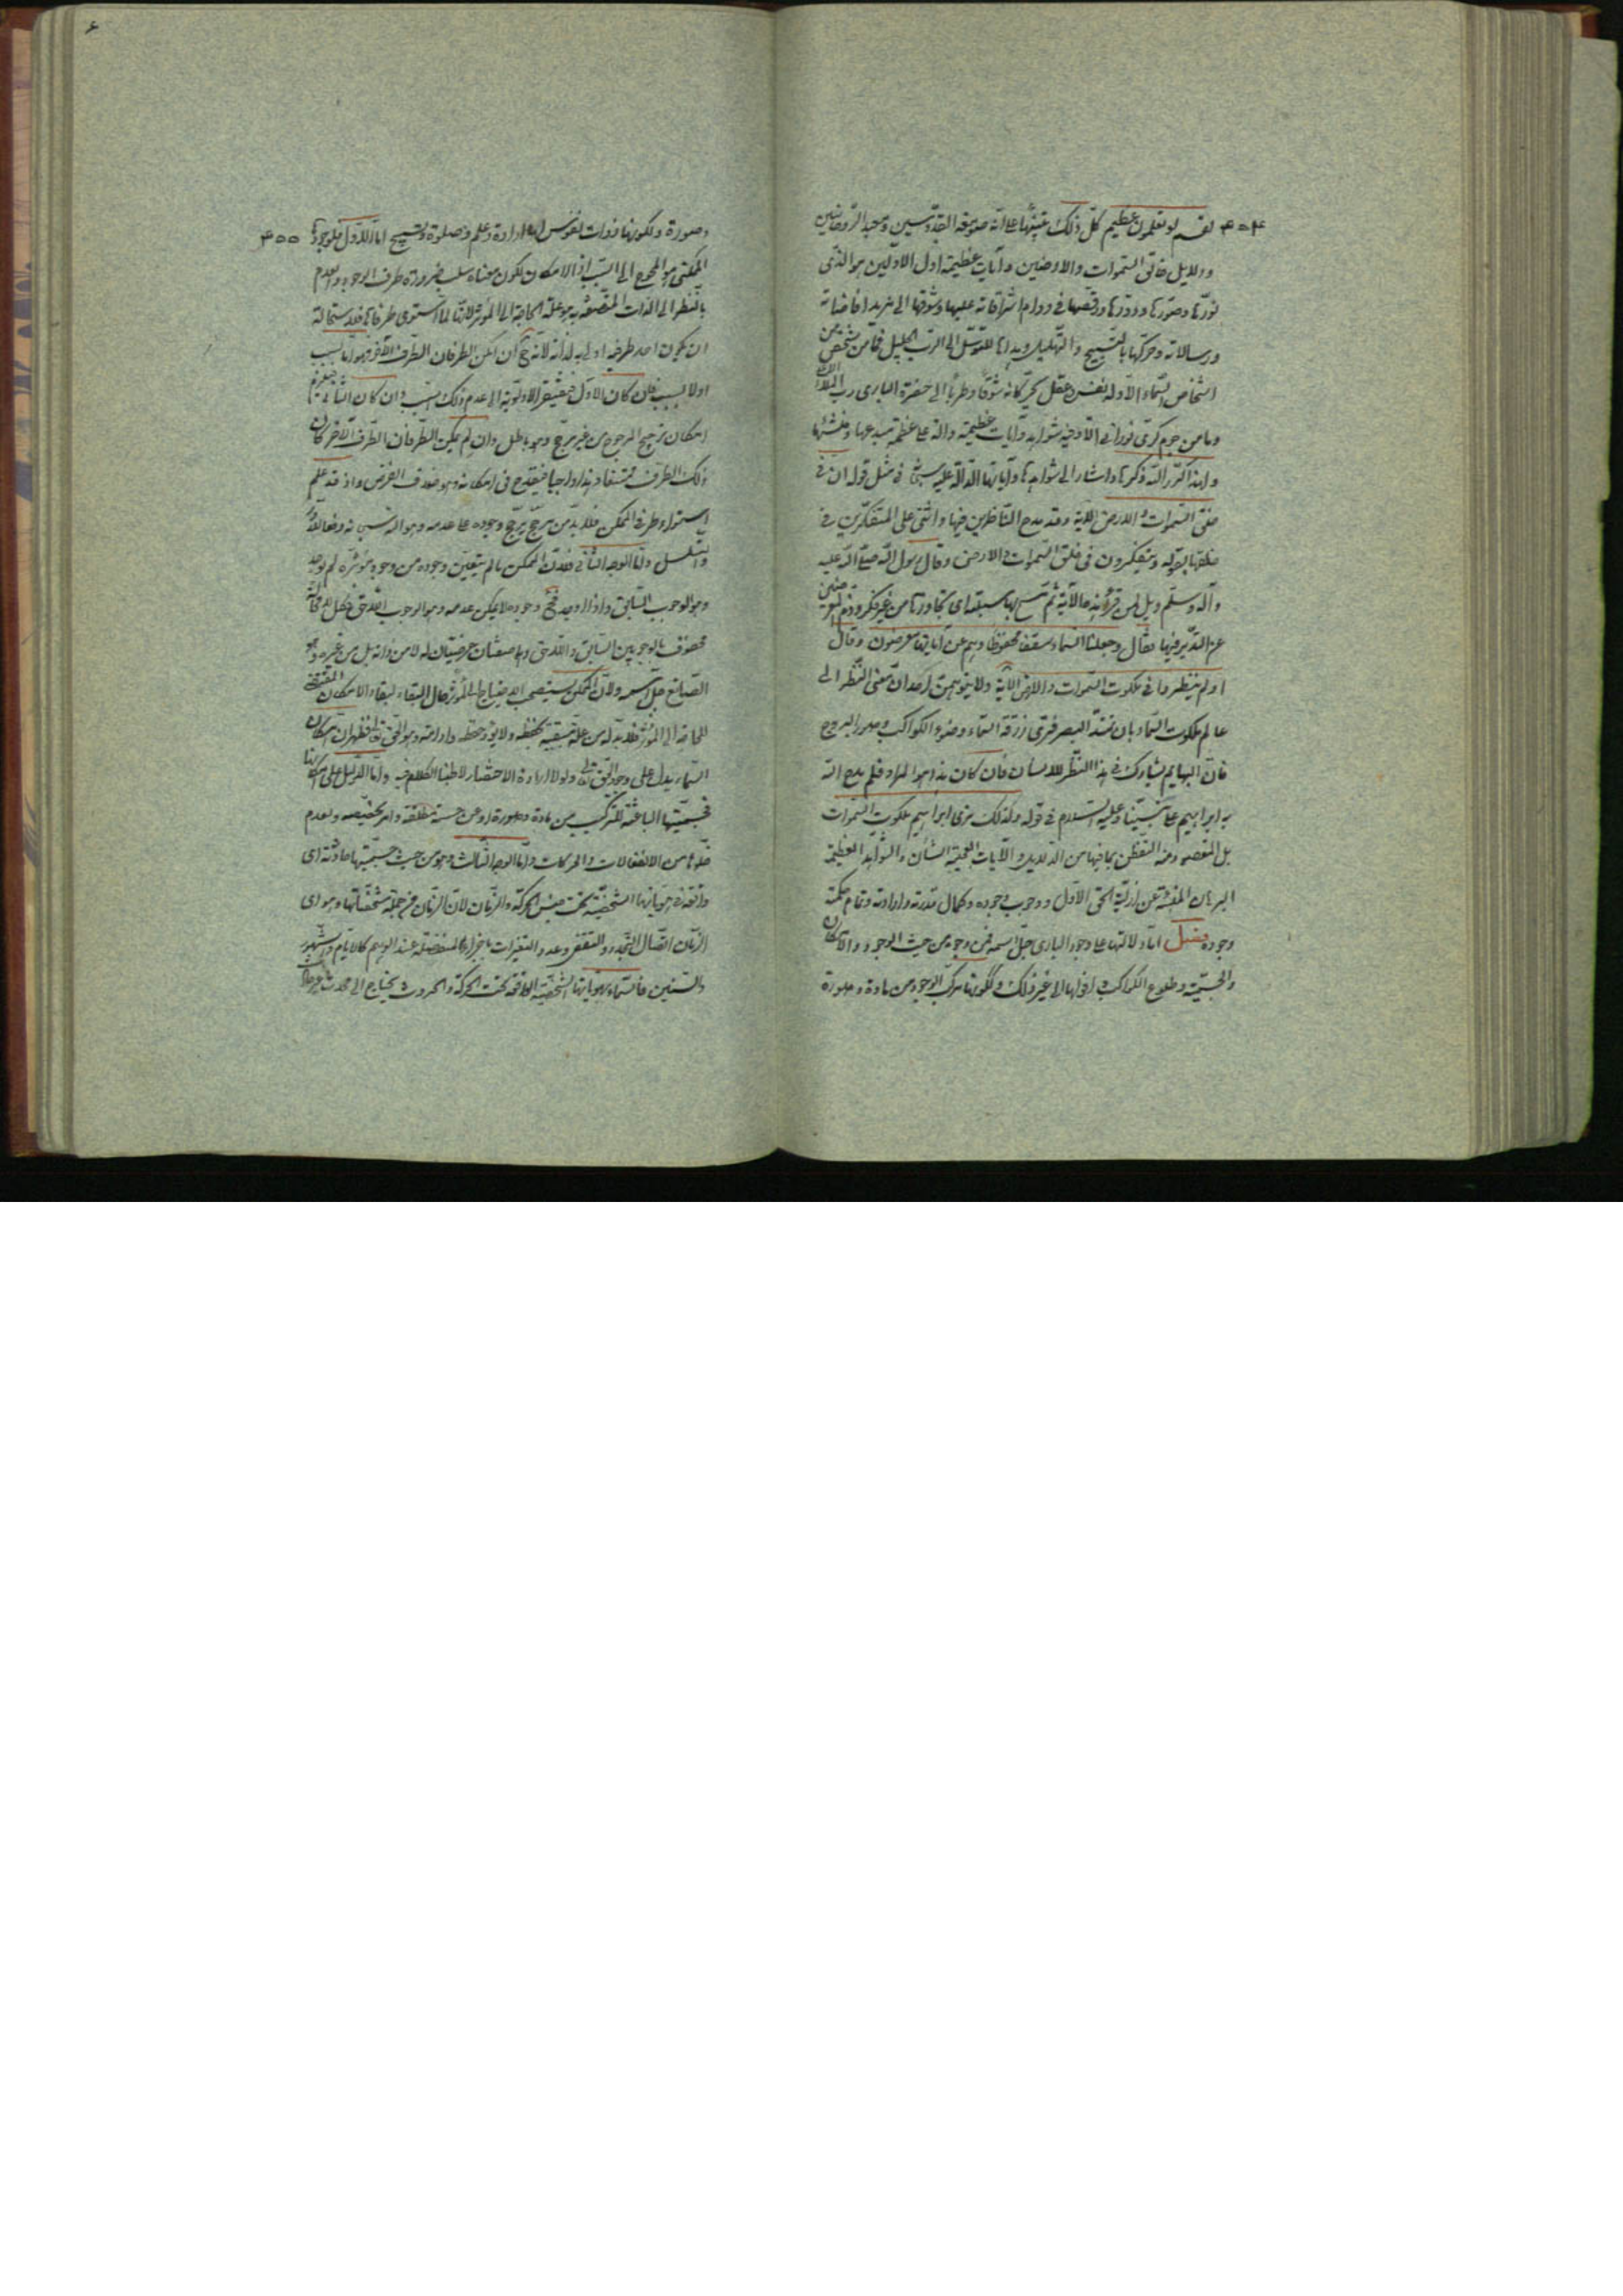 ٤٥٤ لقسم لو تعلمون عظيم كل ذلك تنبيها على انه صومعة القديسين ومعبد الروحانيين
ودلايل خالق السموات والارضين وآيات عظيمة اول الاولين هو الذى
نورها وصورها ودورها ورقصها فى دوام اشراقاته عليها وشوقها الى مزيد افاضاته
ورسالاته وحركها بالتسبيح والتهليل للتوسل الى الرب الجليل فما من شخص من
اشخاص السماء الا وله نفس وعقل يحركانه شوقا وطربا الى حضرة البارى رب
وما من جرم كرى نورانى الا وفيه شواهد وآيات عظيمة دالة على عظمة مبدعها ومنشئها
ولهذا كرر الله ذكرها واشار الى شواهدها وآياتها الدالة عليه فى مثل قوله ان فى
خلق السموات والارض الآية وقد مدح الناظرين فيها واثنى على المتفكرين فى
خلقها بقوله ويتفكرون فى خلق السموات والارض وقال رسول الله صلى الله عليه
وآله وسلم ويل لمن قرأ هذه الآية ثم مسح بها سبلته اى تجاوزها من غير فكر وذم المعرضين
عن التدبر فيها فقال وجعلنا السماء سقفا محفوظا وهم عن آياتها معرضون وقال
اولم ينظروا فى ملكوت السموات والارض الآية ولا يتوهمن احد ان معنى النظر الى
عالم ملكوت السماء بان تمتد البصر فترى زرقة السماء وضوء الكواكب وصور البروج
فان البهايم يشارك فى هذا النظر للانسان فان كان هذا هو المراد فلم مدح الله
به ابراهيم على نبينا وعليه السلام فى قوله وكذلك نرى ابراهيم ملكوت السموات
بل المقصود منه التفطن بما فيها من الدلايل والآيات الجلية الشأن والشواهد العظيمة
البرهان المنبئة عن ازلية الحق الاول ووجوب وجوده وكمال قدرته وارادته وتمام حكمته
وجوده فصل اما دلالتها على وجود البارى جل اسمه فمن وجوه من حيث الوجود والامكان
والجسمية وطلوع الكواكب وافولها الى غير ذلك ولكونها مركب الوجود من مادة وصورة
وصورة ولكونها ذوات نفوس لها ارادة وعلم وصلوة وتسبيح اما الاول فلوجودها ٤٥٥
الممكنى هو المحوج الى السبب اذ الامكان لكون معناه سلب ضرورة طرف الوجود والعدم
بالنظر الى الذات المتصفة به هو علة الحاجة الى المؤثر لانها لما استوى طرفاها فلاستحالة
ان يكون احد طرفيه اولى به لذاته لانه ح ان امكن الطرفان الطرف الآخر فهو اما بسبب
اولا بسبب فان كان الاول فيفتقر الاولوية الى عدم ذلك السبب وان كان الثانى فيلزم
امكان ترجيح المرجوح من غير مرجح وهو باطل وان لم يكن الطرفان الطرف الآخر كان
ذلك الطرف ممتنعا وهذا واجبا فيقدح فى امكانه وهو خلاف الفرض واذ قد علم
استواء طرفى الممكن فلا بد من مرجح يرجح وجوده على عدمه وهو الله سبحانه دفعا للدور
والتسلسل واما الوجه الثانى فلان الممكن ما لم يتعين وجوده من وجود مؤثره لم يوجد
وهو الوجوب السابق واذا وجد فح وجوده لا يمكن عدمه وهو الوجوب اللاحق فكل ممكن
محفوف بالوجوبين السابق واللاحق وهما صفتان عرضيتان له لا من ذاته بل من غيره وهو
الصانع جل اسمه ولان الممكن يستصحب الاحتياج الى المؤثر حال البقاء لبقاء الامكان المقتضى
للحاجة الى المؤثر فلا بد له من علة مبقية تحفظه ولا يؤده حفظه وادامته وهو الحق تعالى فظهر ان امكان
السماء يدل على وجود الحق تعالى ولولا ارادة الاختصار لاطنبنا الكلام فيه واما الدليل على امكانها
فجسميتها الباعثة للتركيب من مادة وصورة او عن جسمية مطلقة وامر مخصصه ولعدم
خلوها من الانفعالات والحركات واما الوجه الثالث وهو من حيث جسميتها حادثة اى
واقعة فى هوياتها الشخصية تحت جنس الحركة والزمان لان الزمان من جملة مشخصاتها وهو اى
الزمان اتصال التجدد والتقضى وعدد التغيرات باجزائها المنفصلة عند الوهم كالايام والشهور
والسنين فالسماء بهوياتها الشخصية الواقعة تحت الحركة والحدوث يحتاج الى محدث غير